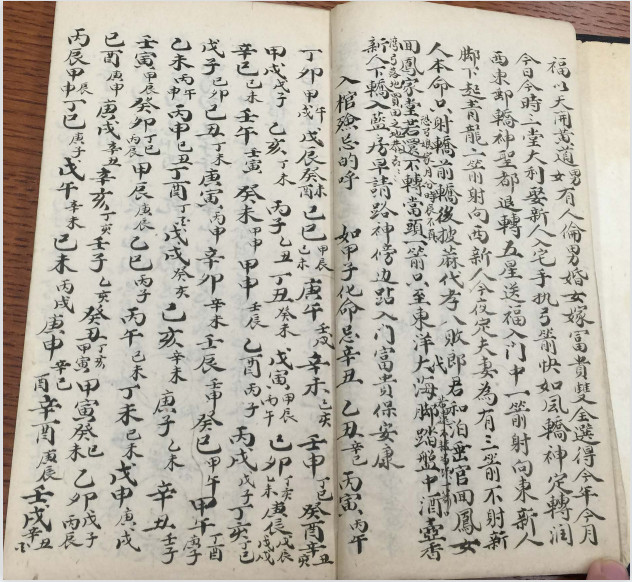 福以天開黃道男女有人倫男婚女嫁富貴雙全選得今年今月
今日今時三堂大利娶新人入宅手执弓箭快如風轎神定轉润
西東邨轎神聖都退轉五星送福入门中一箭射向東新人
脚下起青龍一箭射向西新人今夜定夫妻為有三箭不財新
人本命只射轎前轎後披蔴代孝八敗郎君和泊官回鳳女
回鳳家堂若還不轉當頭一箭只至東洋大海脚踏盤中酒壺香
新人下轎入監房早請路神傍边跕入门富貴保安康
入棺殮忌的呼 如甲子化命忌辛丑 乙丑辛巳 丙寅丙午
丁卯甲戌 戊辰癸未 己巳甲辰己未 庚午壬戌 辛未乙亥 壬申丁巳 癸酉辛丑
甲戌戊子 乙亥丁未 丙子乙丑 丁丑癸未 戊寅甲辰丙午 己卯丁亥乙未 庚辰戊辰戊戌
辛巳己未 壬午壬寅 癸未甲申 甲申壬辰 乙酉丙子 丙戌戊子 丁亥丁巳
戊子己卯 己丑丁未 庚寅丙申 辛卯辛未 壬辰壬申 癸巳甲午 甲午丁酉庚子
乙未丙午 丙申己丑 丁酉丁亥 戊戌癸亥 己亥辛未 庚子乙未 辛丑壬子
壬寅甲辰 癸卯丁巳丙辰 甲辰庚辰 乙巳丙子 丙午己未 丁未己未 戊申庚戌
己酉庚申 庚戌辛丑 辛亥丁亥 壬子乙亥 癸丑丁亥甲寅 甲寅癸巳 乙卯戊子丙辰
丙辰甲申 丁巳庚子 戊午辛未 己未丙戌 庚申辛巳 辛酉庚辰 壬戌辛丑